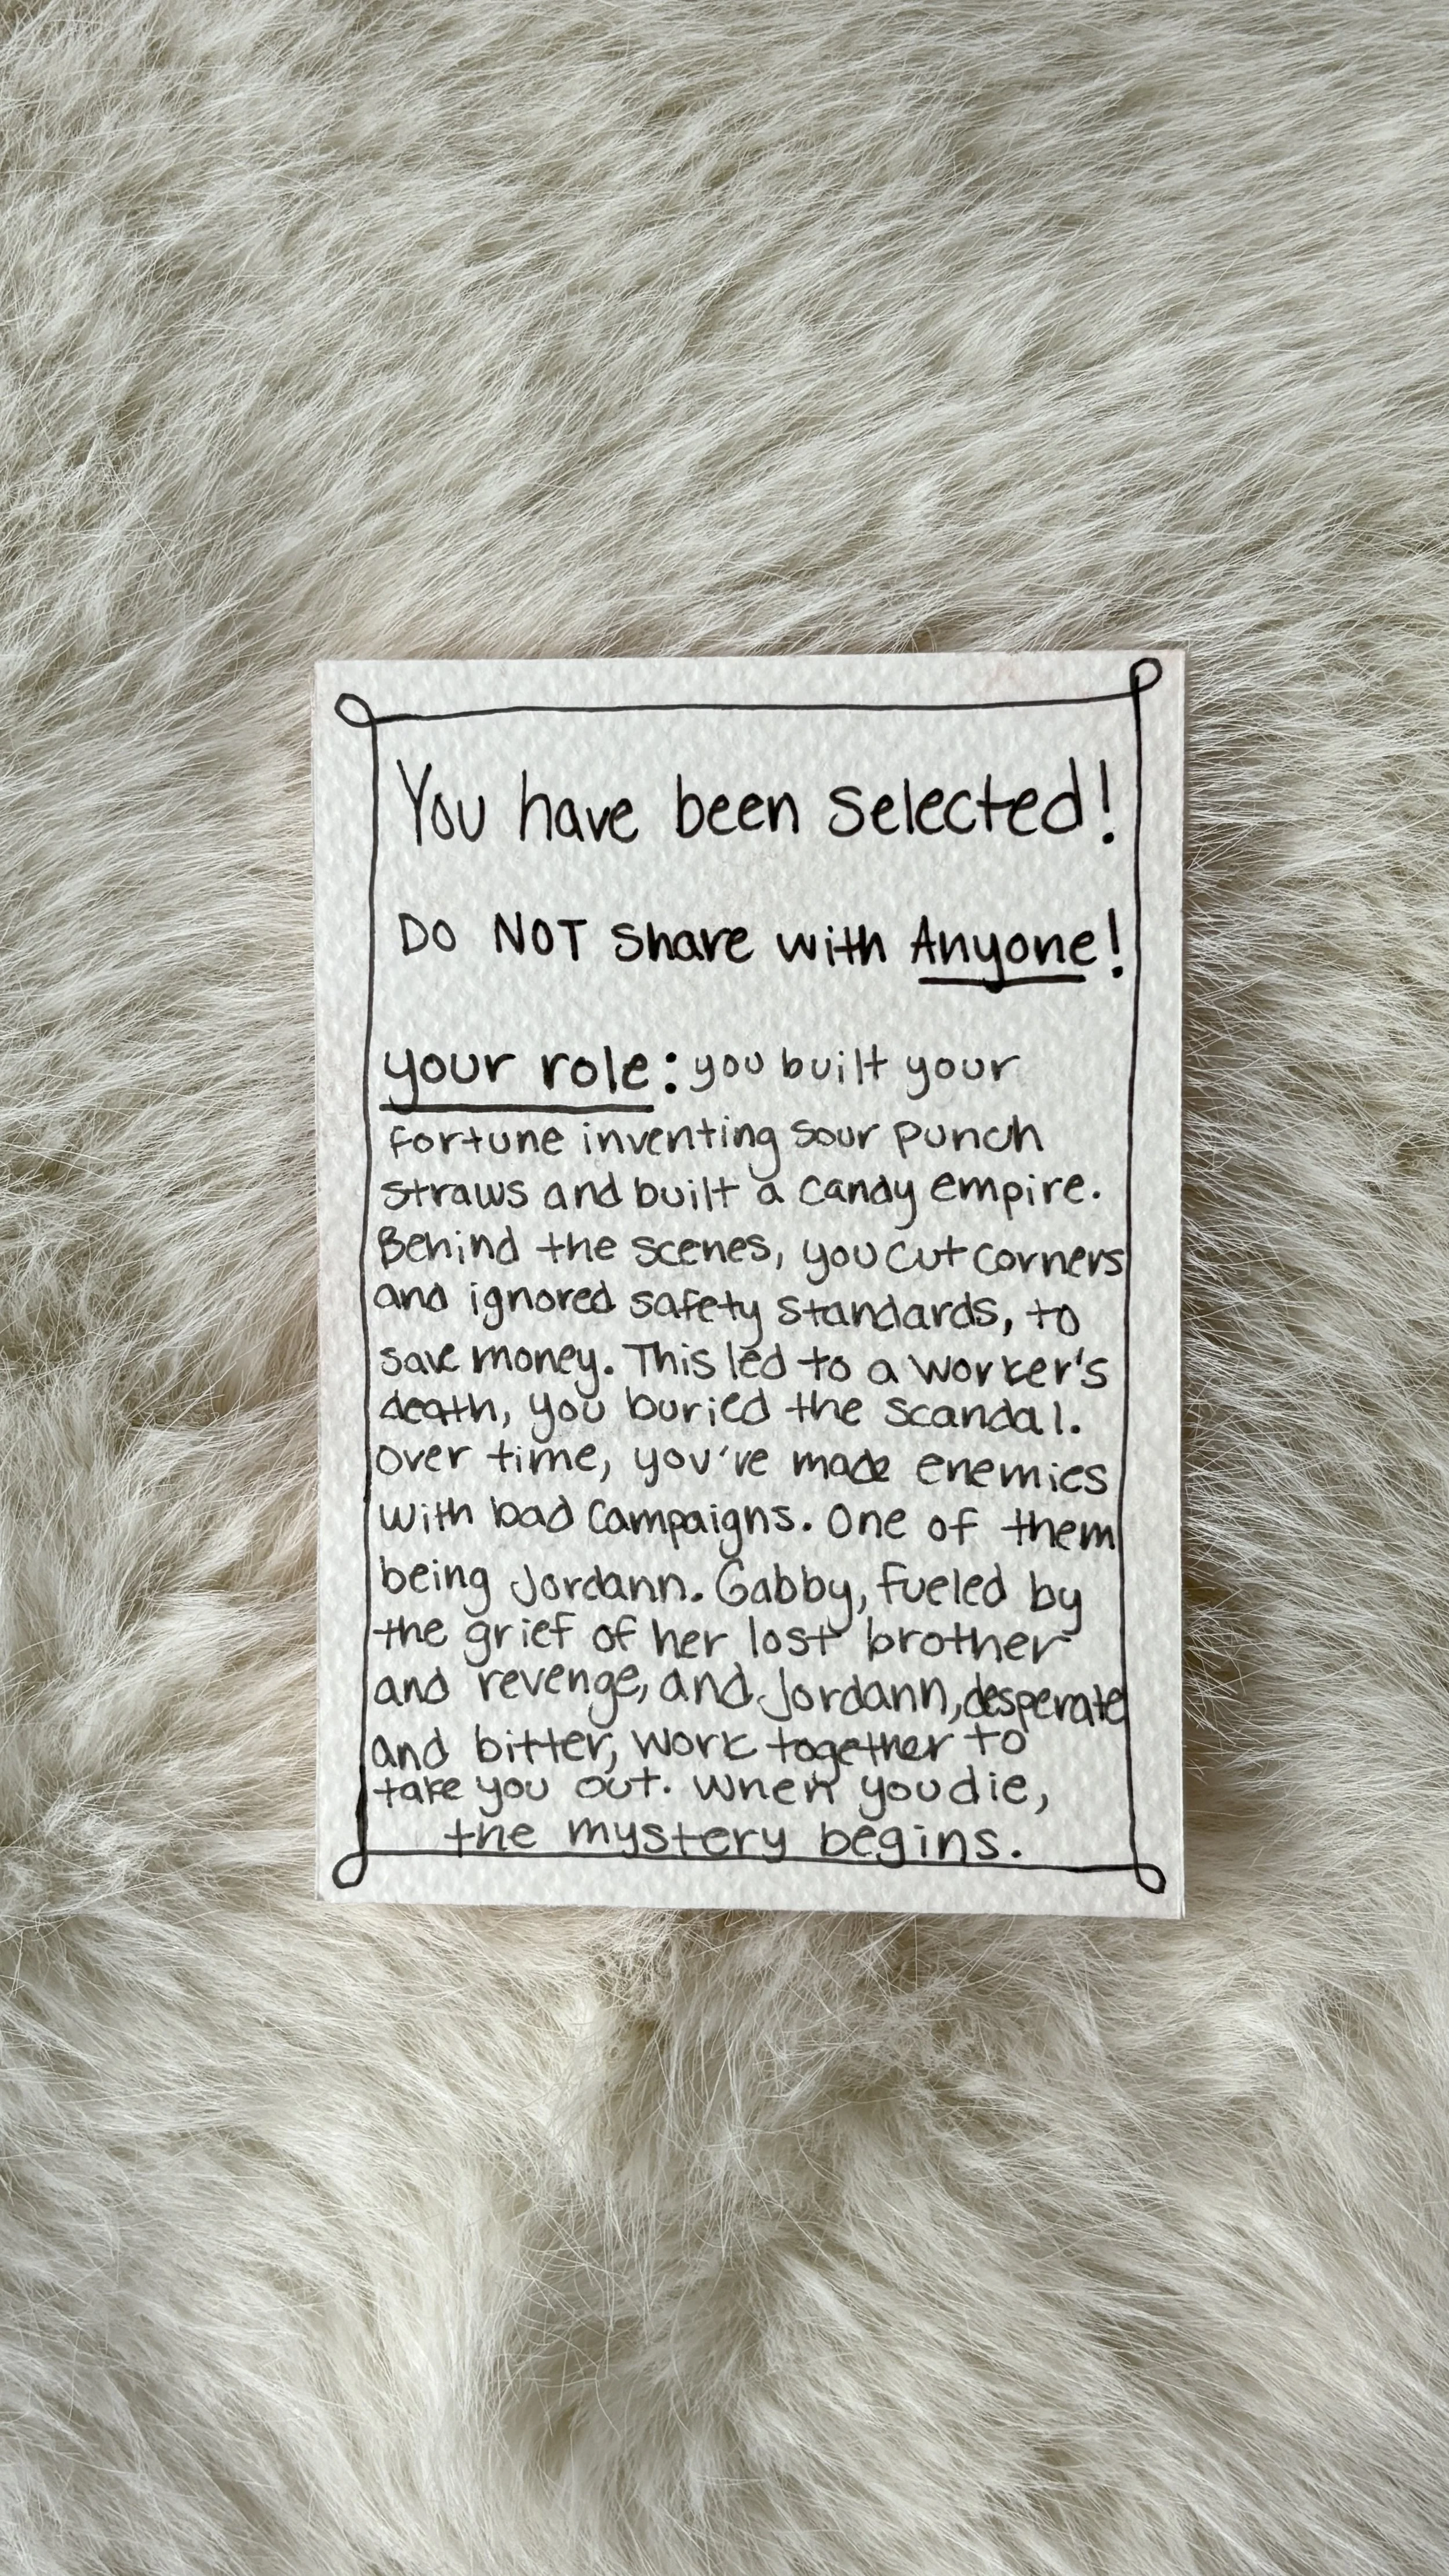 You have been selected!
DO NOT share with Anyone!
your role: you built your
fortune inventing sour punch
straws and built a candy empire.
Behind the scenes, you cut corners
and ignored safety standards, to
save money. This led to a worker's
death, you buried the scandal.
Over time, you've made enemies
with bad campaigns. One of them
being Jordann. Gabby, fueled by
the grief of her lost brother
and revenge, and Jordann, desperate
and bitter, work together to
take you out. When you die,
the mystery begins.